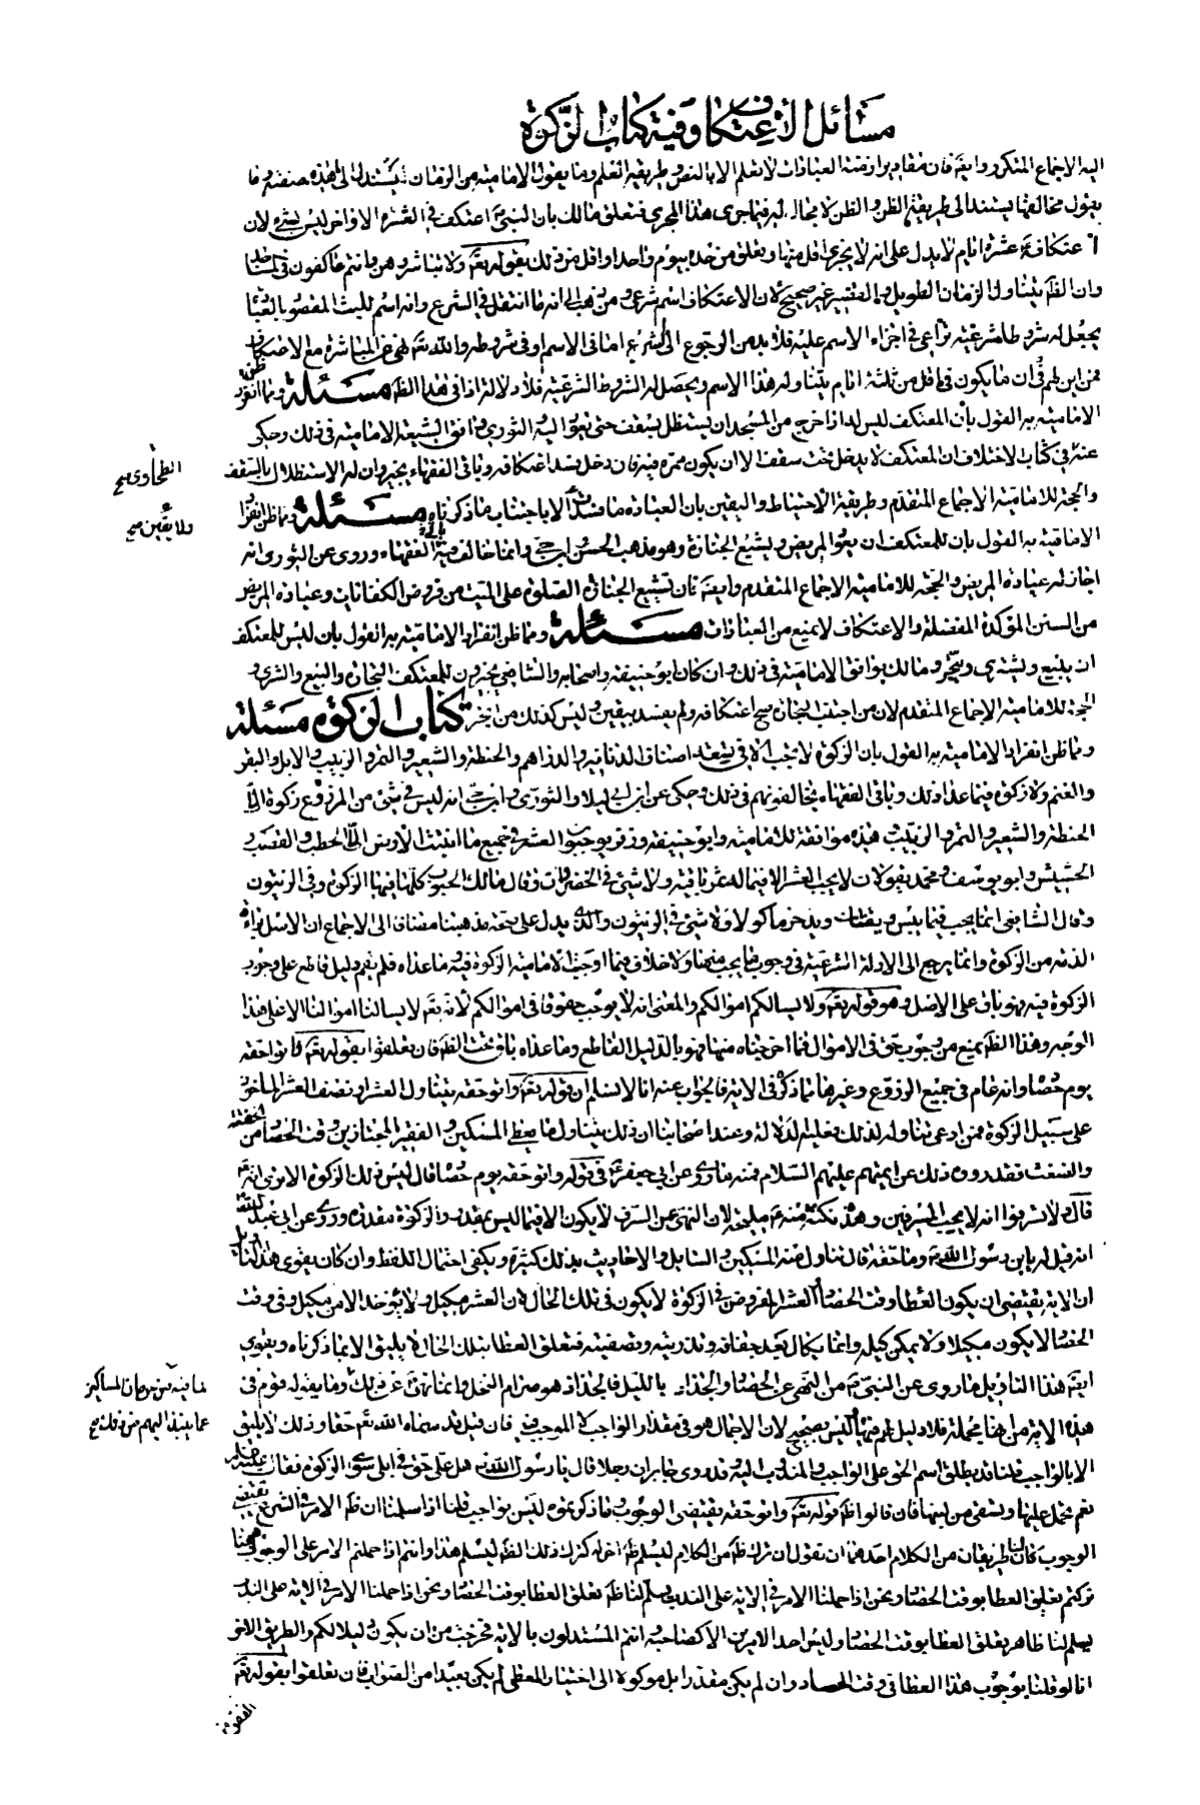 مسائل الاعتكاف وفيه كتاب الزكوة
اليه الاجماع المتكرر وايضا فان مقادير ازمنة العبادات لا تعلم الا بالنص وطريقه العلم وما يقول الامامية من الزمان يستند الى هذه صفته وما
يقول مخالفها يستند الى طريقة الظن والظن لا مجال له فيما جرى هذا المجرى فتعلق مالك بان النبي ص اعتكف في العشر الاواخر ليس بشيء لان
اعتكافه عشرة ايام لا يدل على انه لا يجزي اقل منها وتعلق من حده بيوم واحد او اقل من ذلك بقوله تعالى ولا تباشروهن وانتم عاكفون في المساجد
وان الظاهر يتناول الزمان الطويل والقصير غير صحيح لان الاعتكاف اسم شرعي ومن ذهب الى انه ما انتقل في الشرع وانه اسم للبث المقصود بالعبادة
يجعل له شروطا شرعية تراعى في اجزاء الاسم عليه فلا بد من الرجوع الى الشرع اما في الاسم او في شروطه والله تعالى نهى عن المباشرة مع الاعتكاف
فمن اين لهم ان ما يكون في اقل من ثلثة ايام يتناوله هذا الاسم ويحصل له الشروط الشرعية فلا دلالة اذا في هذا الظاهر مسئلة ومما ظن انفراد
الامامية به القول بان المعتكف ليس له اذا خرج من المسجد ان يستظل بسقف حتى يعود اليه والثوري يوافق الشيعة الامامية في ذلك وحكى
عنه في كتاب الاختلاف ان المعتكف لا يدخل تحت سقف الا ان يكون ممره فيه فان دخل فسد اعتكافه وباقي الفقهاء يجيزون له الاستظلال بالسقف
الطحاوي صح
والحجة للامامية الاجماع المتقدم وطريقة الاحتياط واليقين بان العبادة ما فسدت الا باجتناب ما ذكرناه مسئلة ومما ظن انفراد
ولا يقين صح
الامامية به القول بان للمعتكف ان يعود المريض ويشيع الجنازة وهو مذهب الحسن بن حي وانما خالف فيه باقي الفقهاء وروى عن الثوري انه
اجاز له عيادة المريض والحجة للامامية الاجماع المتقدم وايضا فان تشييع الجنازة والصلوة على الميت من فروض الكفايات وعيادة المريض
من السنن المؤكدة المفضلة والاعتكاف لا يمنع من العبادات مسئلة ومما ظن انفراد الامامية به القول بان ليس للمعتكف
ان يبيع ويشترى ويتجر ومالك يوافق الامامية في ذلك وان كان ابو حنيفة واصحابه والشافعي يجيزون للمعتكف التجارة والبيع والشرى و
الحجة للامامية الاجماع المتقدم لان من اجتنب التجارة صح اعتكافه ولم يفسد بيقين وليس كذلك من اتجر كتاب الزكوة مسئلة
ومما ظن انفراد الامامية به القول بان الزكوة لا تجب الا في تسعة اصناف الدنانير والدراهم والحنطة والشعير والتمر والزبيب والابل والبقر
والغنم ولا زكوة فيما عدا ذلك وباقي الفقهاء يخالفونهم في ذلك وحكى عن ابن ابي ليلى والثوري وابن حي انه ليس في شيء من الزروع زكوة الا
الحنطة والشعير والتمر والزبيب هذه موافقة للامامية وابو حنيفة وزفر يوجبون العشر في جميع ما انبتت الارض الا الحطب والقصب و
الحشيش وابو يوسف ومحمد يقولان لا يجب العشر الا فيما له ثمرة باقية ولا شيء في الخضروات وقال مالك الحبوب كلها فيها الزكوة وفي الزيتون
وقال الشافعي انما يجب فيما ييبس ويقتات ويدخر ماكولا ولا شيء في الزيتون والذي يدل على صحة مذهبنا مضافا الى الاجماع ان الاصل براءة
الذمة من الزكوة وانما يرجع الى الادلة الشرعية في وجوب ما يجب منها ولا خلاف فيما اوجبت الامامية الزكوة فيه وما عداه فلم يقم دليل قاطع على وجوب
الزكوة فيه فهو باق على الاصل وهو قوله تعالى ولا يسالكم اموالكم والمعنى انه لا يوجب حقوقا في اموالكم لانه تعالى لا يسالنا اموالنا الا على هذا
الوجه وهذا الظاهر يمنع من وجوب حق في الاموال فما اخرجناه منها فهو بالدليل القاطع وما عداه باق تحت الظاهر فان تعلقوا بقوله تعالى واتوا حقه
يوم حصاده وانه عام في جميع الزروع وغيرها مما ذكر في الاية فالجواب عنه انا لا نسلم ان قوله تعالى واتوا حقه يتناول العشر او نصف العشر الماخوذ
على سبيل الزكوة فمن ادعى تناوله لذلك فعليه الدلالة وعند اصحابنا ان ذلك يتناول ما يعطى المسكين والفقير المجتاز وقت الحصاد من الحفنة
والضغث فقد رووا ذلك عن ايمتهم عليهم السلام فمنه ما روي عن ابي جعفر ع في قوله واتوا حقه يوم حصاده قال ليس ذلك الزكوة الا ترى انه تعالى
قال ولا تسرفوا انه لا يحب المسرفين وهذه نكتة منه ع مليحة لان النهى عن السرف لا يكون الا فيما ليس بمقدر والزكوة مقدرة وروى عن ابي عبد الله
انه قيل له يابن رسول الله ص وما حقه قال تناول منه المسكين والسايل والاحاديث بذلك كثيرة ويكفي احتمال اللفظ وان كان يقوى هذا التاويل
ان الاية يقتضي ان يكون العطاء وقت الحصاد والعشر المفروض في الزكوة لا يكون في تلك الحال لان العشر مكيل ولا يؤخذ الا من مكيل وفي وقت
الحصاد لا يكون مكيلا ولا يمكن كيله وانما يكال بعد جفافه وتذريته وتصفيته فتعلق العطاء بتلك الحال لا يليق الا بما ذكرناه ويقوى
ايضا هذا التاويل ما روى عن النبي ص من النهى عن الحصاد والجذاذ بالليل فالجذاذ هو صرام النخل وانما نهى ع عن ذلك وما يقوله قوم في
لما فيه من حرمان المساكين
هذه الاية من انها مجملة فلا دليل لهم فيها ليس بصحيح لان الاجمال هو في مقدار الواجب لا الموجب فيه فان قيل قد سماه الله تعالى حقا وذلك لا يليق
عما ينبذ اليهم من ذلك صح
الا بالواجب قلنا قد يطلق اسم الحق على الواجب والمندوب اليه وقد روى جابر ان رجلا قال يا رسول الله ص هل على حق في ابلى سوى الزكوة فقال ع
نعم تحمل عليها وتسقي من لبنها فان قالوا ظاهر قوله تعالى واتوا حقه يقتضي الوجوب وما ذكرتموه ليس بواجب قلنا اذا سلمنا ان ظاهر الامر في الشرع يقتضي
الوجوب كان لنا طريقان من الكلام احدهما ان نقول ان ترك ظاهر من الكلام ليسلم ظاهر اخر له كترك ذلك الظاهر ليسلم هذا وانتم اذا حملتم الامر على الوجوب هيهنا
تركتم تعلق العطاء بوقت الحصاد ونحن اذا حملنا الامر في الاية على الندب
يسلم لنا ظاهر تعلق العطاء بوقت الحصاد وليس احد الامرين الا كصاحبه وانتم المستدلون بالاية فخرجت من ان يكون دليلا لكم والطريق الاخر
انا لو قلنا بوجوب هذا العطاء في وقت الحصاد وان لم يكن مقدرا بل موكولا الى اختيار المعطى لم يكن بعيدا من الصواب فان تعلقوا بقوله تعالى
انفقوا